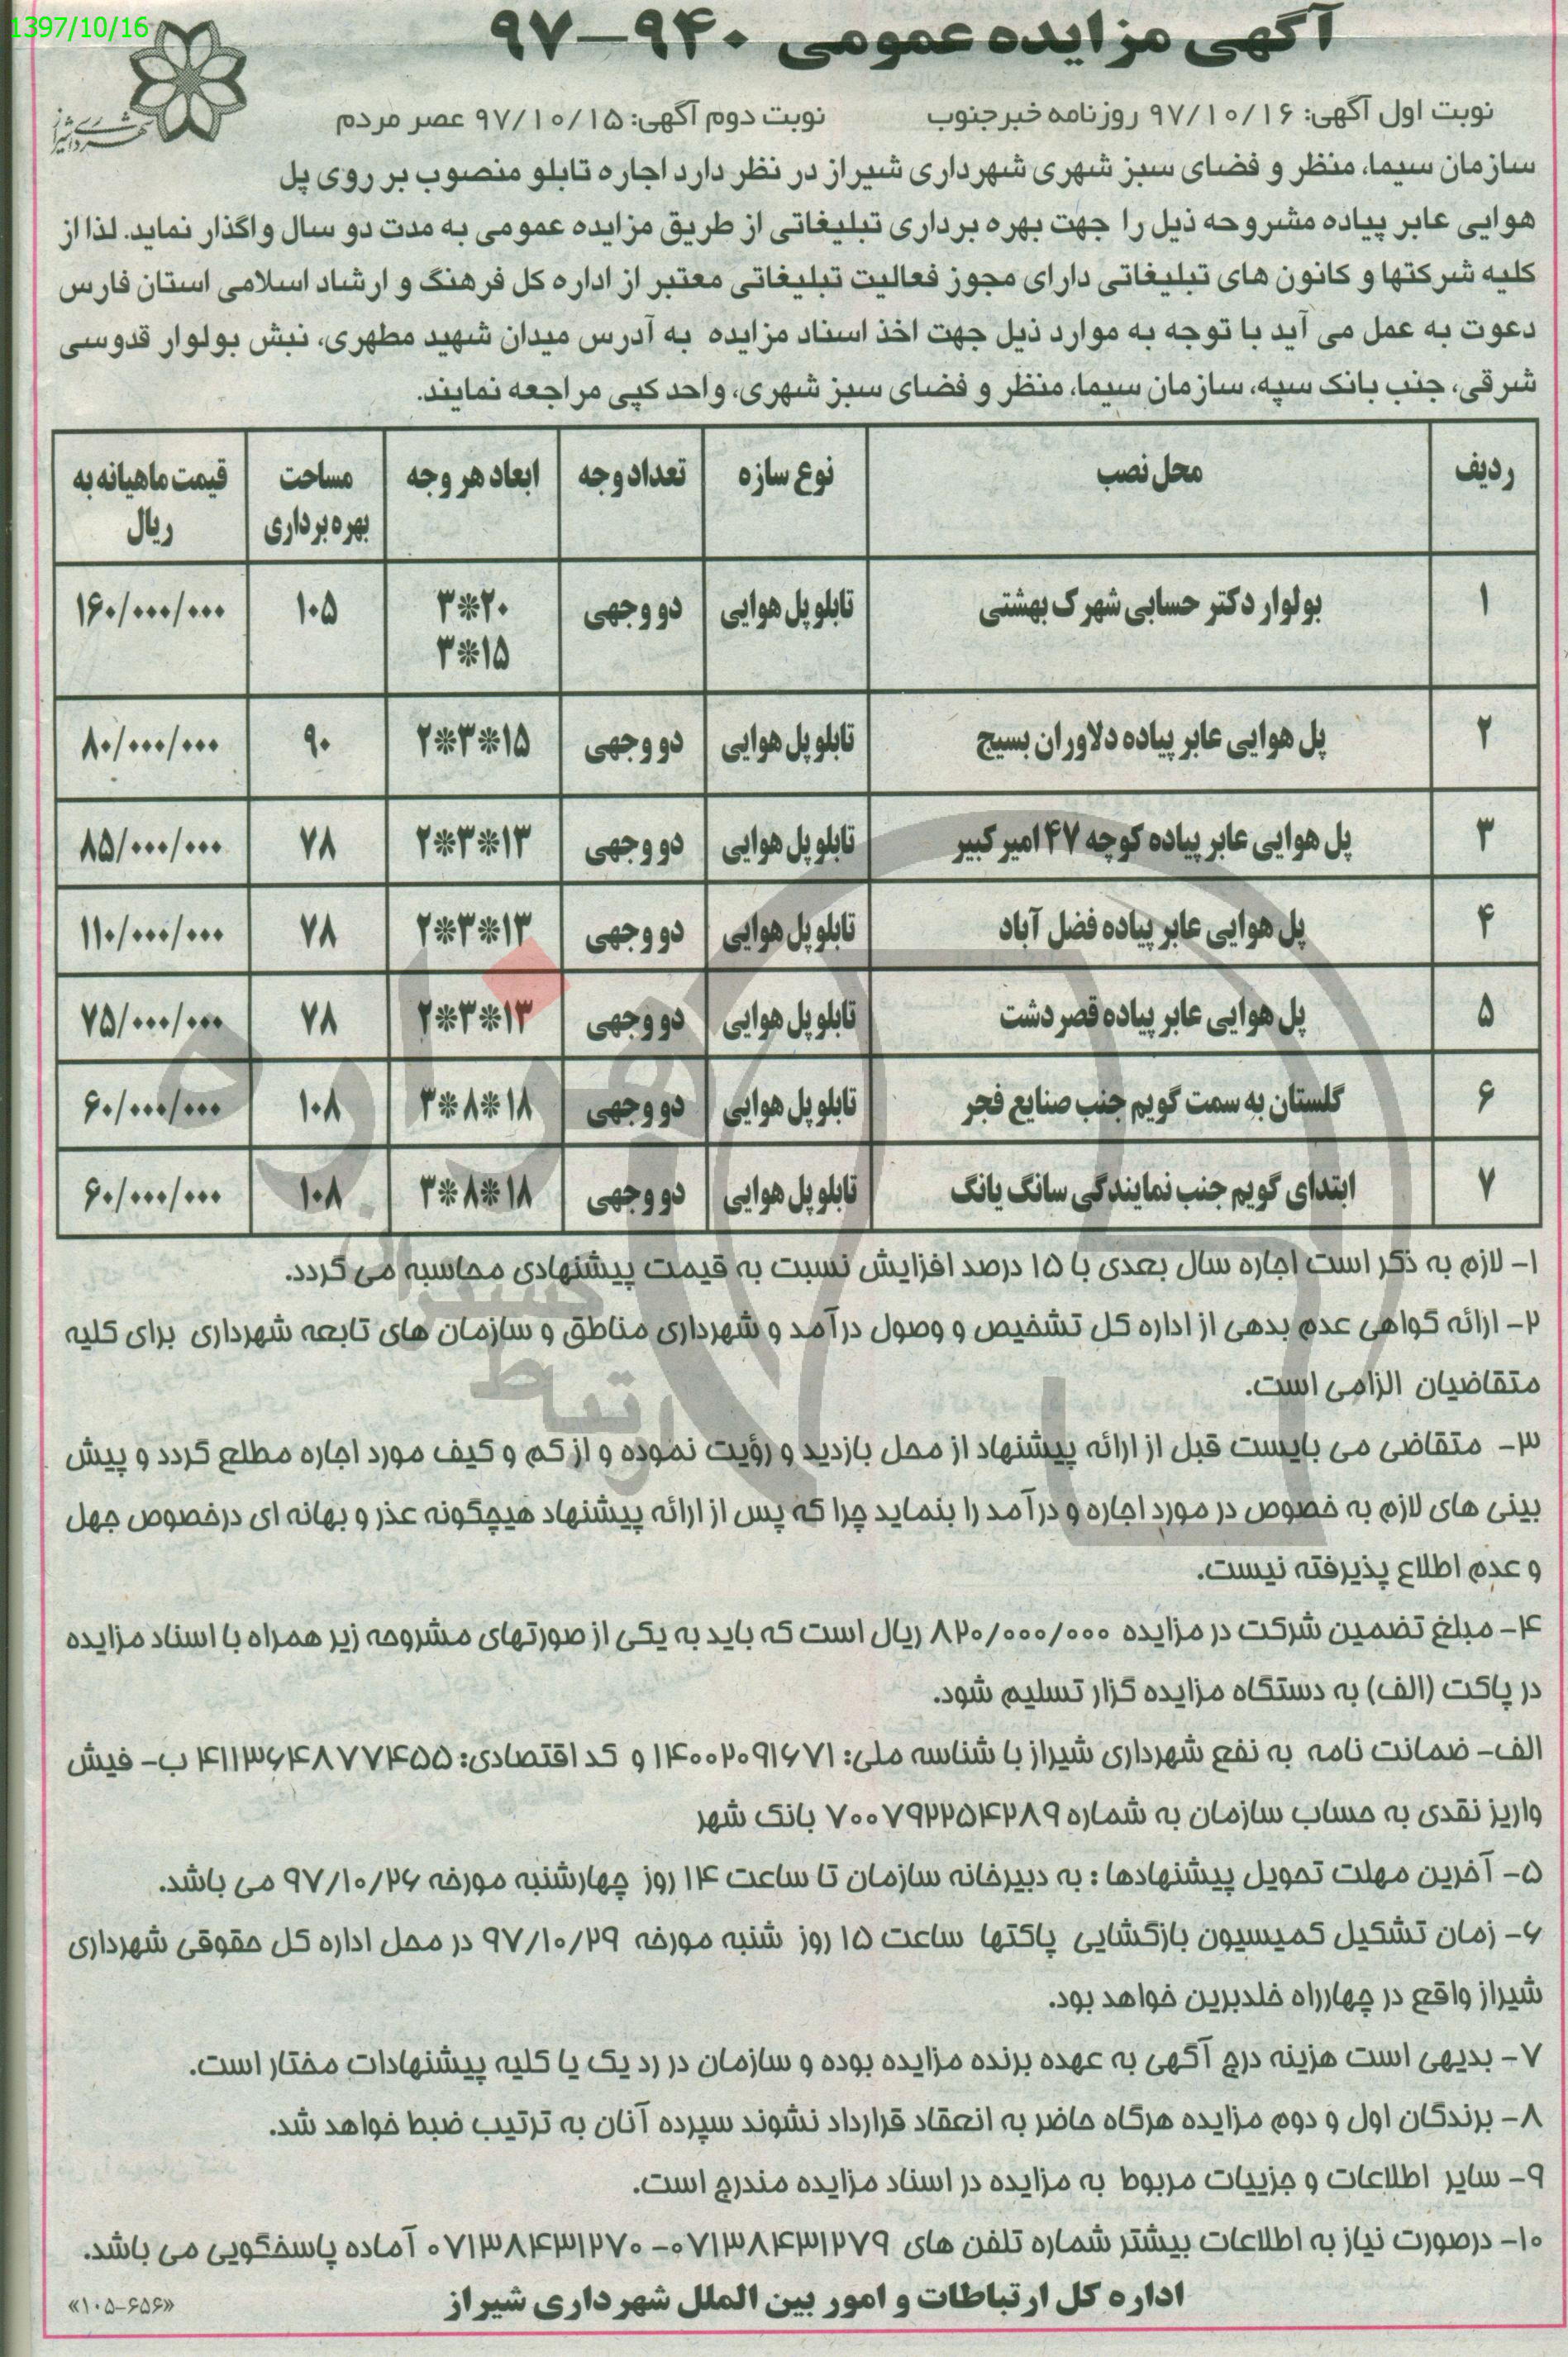 1397/10/16
آگهی مزایده عمومی ۹۴۰-۹۷
شهرداری شیراز
نوبت اول آگهی: ۹۷/۱۰/۱۶ روزنامه خبرجنوب نوبت دوم آگهی: ۹۷/۱۰/۱۵ عصر مردم
سازمان سیما، منظر و فضای سبز شهری شهرداری شیراز در نظر دارد اجاره تابلو منصوب بر روی پل
هوایی عابر پیاده مشروحه ذیل را جهت بهره برداری تبلیغاتی از طریق مزایده عمومی به مدت دو سال واگذار نماید. لذا از
کلیه شرکتها و کانون های تبلیغاتی دارای مجوز فعالیت تبلیغاتی معتبر از اداره کل فرهنگ و ارشاد اسلامی استان فارس
دعوت به عمل می آید با توجه به موارد ذیل جهت اخذ اسناد مزایده به آدرس میدان شهید مطهری، نبش بولوار قدوسی
شرقی، جنب بانک سپه، سازمان سیما، منظر و فضای سبز شهری، واحد کپی مراجعه نمایند.
ردیف محل نصب نوع سازه تعداد وجه ابعاد هر وجه مساحت بهره برداری قیمت ماهیانه به ریال
۱ بولوار دکتر حسابی شهرک بهشتی تابلو پل هوایی دو وجهی ۲۰*۳ ۱۵*۳ ۱۰۵ ۱۶۰/۰۰۰/۰۰۰
۲ پل هوایی عابر پیاده دلاوران بسیج تابلو پل هوایی دو وجهی ۱۵*۳*۲ ۹۰ ۸۰/۰۰۰/۰۰۰
۳ پل هوایی عابر پیاده کوچه ۴۷ امیر کبیر تابلو پل هوایی دو وجهی ۱۳*۳*۲ ۷۸ ۸۵/۰۰۰/۰۰۰
۴ پل هوایی عابر پیاده فضل آباد تابلو پل هوایی دو وجهی ۱۳*۳*۲ ۷۸ ۱۱۰/۰۰۰/۰۰۰
۵ پل هوایی عابر پیاده قصر دشت تابلو پل هوایی دو وجهی ۱۳*۳*۲ ۷۸ ۷۵/۰۰۰/۰۰۰
۶ گلستان به سمت گویم جنب صنایع فجر تابلو پل هوایی دو وجهی ۱۸*۸*۳ ۱۰۸ ۶۰/۰۰۰/۰۰۰
۷ ابتدای گویم جنب نمایندگی سانگ یانگ تابلو پل هوایی دو وجهی ۱۸*۸*۳ ۱۰۸ ۶۰/۰۰۰/۰۰۰
۱- لازم به ذکر است اجاره سال بعدی با ۱۵ درصد افزایش نسبت به قیمت پیشنهادی محاسبه می گردد.
۲- ارائه گواهی عدم بدهی از اداره کل تشخیص و وصول درآمد و شهرداری مناطق و سازمان های تابعه شهرداری برای کلیه
متقاضیان الزامی است.
۳- متقاضی می بایست قبل از ارائه پیشنهاد از محل بازدید و رؤیت نموده و از کم و کیف مورد اجاره مطلع گردد و پیش
بینی های لازم به خصوص در مورد اجاره و درآمد را بنماید چرا که پس از ارائه پیشنهاد هیچگونه عذر و بهانه ای درخصوص جهل
و عدم اطلاع پذیرفته نیست.
۴- مبلغ تضمین شرکت در مزایده ۸۲۰/۰۰۰/۰۰۰ ریال است که باید به یکی از صورتهای مشروحه زیر همراه با اسناد مزایده
در پاکت (الف) به دستگاه مزایده گزار تسلیم شود.
الف- ضمانت نامه به نفع شهرداری شیراز با شناسه ملی: ۱۴۰۰۲۰۹۱۶۷۱ و کد اقتصادی: ۴۱۱۳۶۴۸۷۷۴۵۵ ب- فیش
واریز نقدی به حساب سازمان به شماره ۷۰۰۷۹۲۲۵۴۲۸۹ بانک شهر
۵- آخرین مهلت تحویل پیشنهادها : به دبیرخانه سازمان تا ساعت ۱۴ روز چهارشنبه مورخه ۹۷/۱۰/۲۶ می باشد.
۶- زمان تشکیل کمیسیون بازگشایی پاکتها ساعت ۱۵ روز شنبه مورخه ۹۷/۱۰/۲۹ در محل اداره کل حقوقی شهرداری
شیراز واقع در چهارراه خلدبرین خواهد بود.
۷- بدیهی است هزینه درج آگهی به عهده برنده مزایده بوده و سازمان در رد یک یا کلیه پیشنهادات مختار است.
۸- برندگان اول و دوم مزایده هرگاه حاضر به انعقاد قرارداد نشوند سپرده آنان به ترتیب ضبط خواهد شد.
۹- سایر اطلاعات و جزییات مربوط به مزایده در اسناد مزایده مندرج است.
۱۰- درصورت نیاز به اطلاعات بیشتر شماره تلفن های ۰۷۱۳۸۴۳۱۲۷۹- ۰۷۱۳۸۴۳۱۲۷۰ آماده پاسخگویی می باشد.
اداره کل ارتباطات و امور بین الملل شهرداری شیراز
«۱۰۵-۶۵۶»
هزاره
گستران
ارتباط